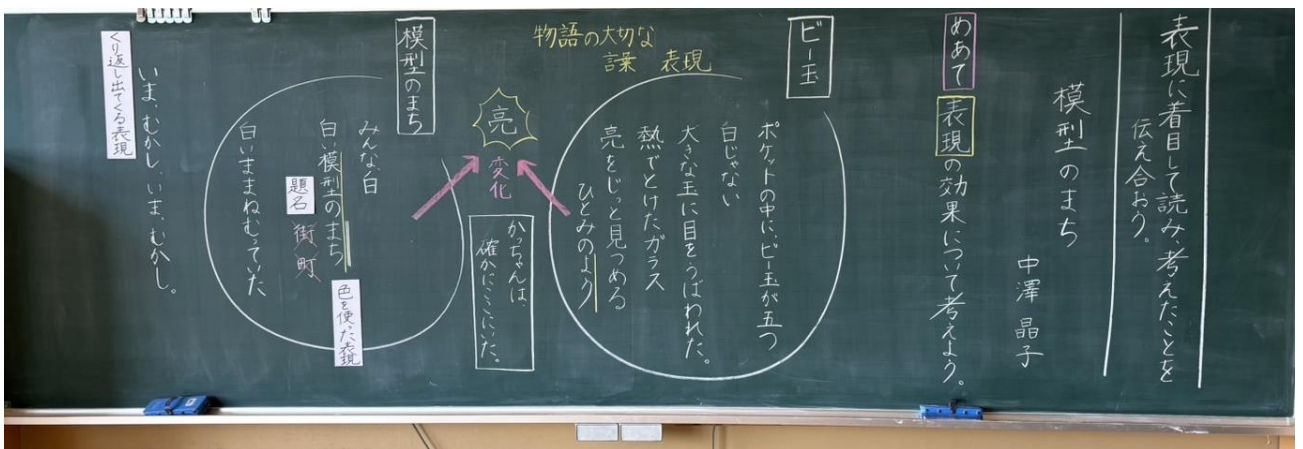 表現に着目して読み、考えたことを
伝え合おう。
模型のまち
中澤晶子
めあて
表現の効果について考えよう。
ビー玉
ポケットの中に、ビー玉が五つ
白じゃない
大きな玉に目をうばわれた。
熱でとけたガラス
亮をじっと見つめる
ひとみのよう
物語の大切な
言葉 表現
亮
変化
かっちゃんは、
確かにここにいた。
模型のまち
みんな白
白い模型のまち
色を使った表現
題名
街 町
白いままねむっていた
いま、むかし、いま、むかし。
くり返し出てくる表現